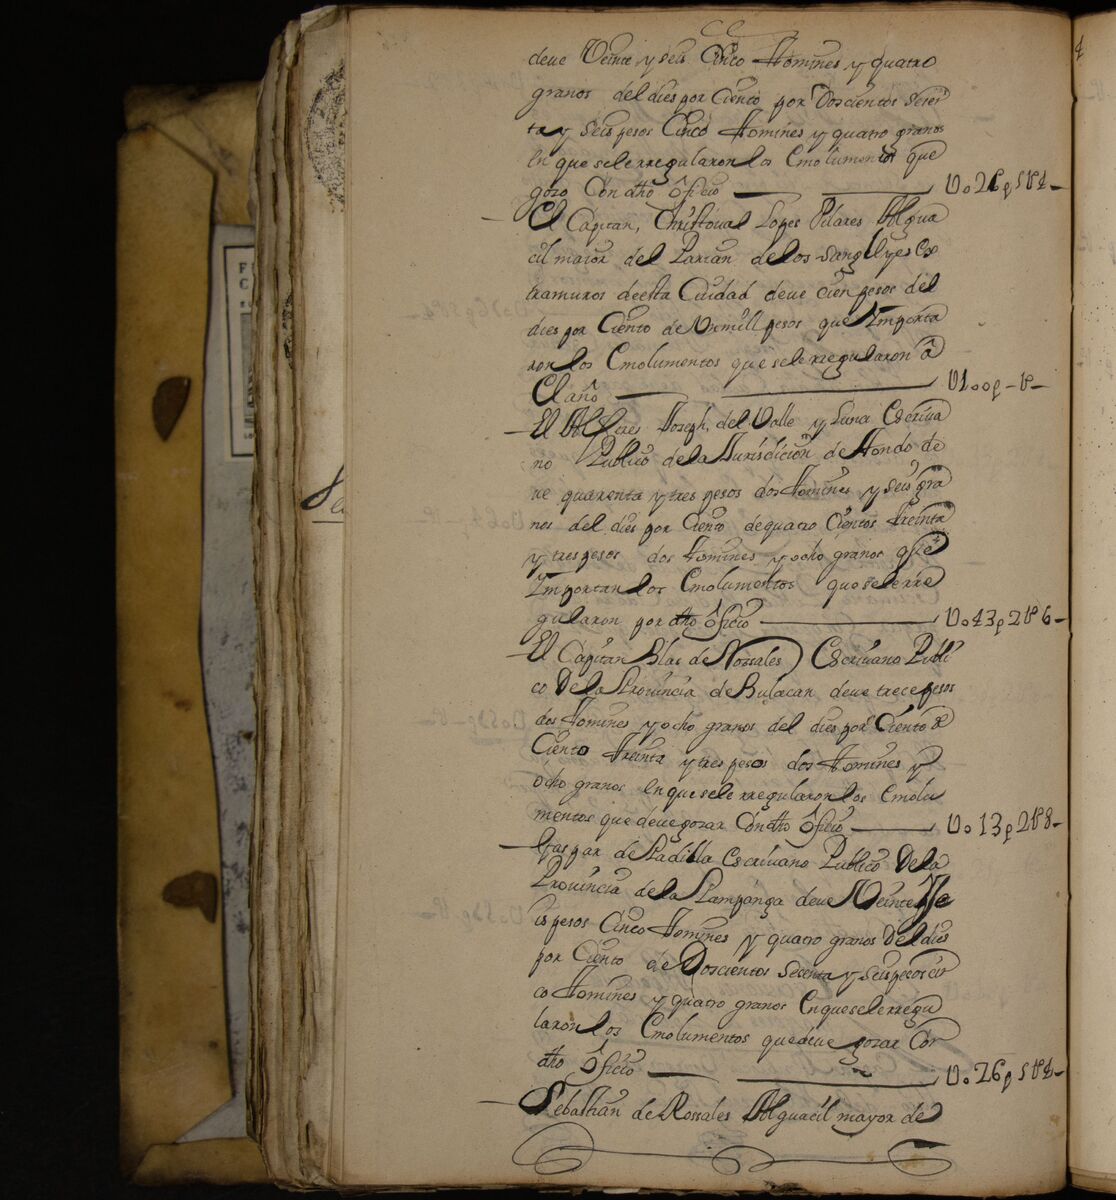 deve Veinte y seis Cinco thomines y quatro
granos del dies por Ciento por Doscientos sesen
ta y seis pesos Cinco thomines y quatro granos
en que sele rregularon los Emolumentos que
goso Con dho Officio U026p5t4
El Capitan, Christoval Lopes Pilares Algua
cil maior del Parian delos sangleyes Ex
tramuros de esta Ciudad deve cien pesos del
dies por Ciento de Un mill pesos que Importa
ron los Emolumentos que sele rregularon â
El año U100p-t-
El Alferes Joseph, del Valle y Luna Escriva
no Publico de la Jurisdicion de thondo de
ve quarenta y tres pesos dos thomines y seis gra
nos del dies por Ciento de quatro Cientos treinta
y tres pesos dos thomines y ocho granos que
Importan los Emolumentos que sele rre
gularon por dho officio U043p2t6
El Capitan Blas de Rossales Escrivano Publi
co De la Provincia de Bulacan deve trece pesos
dos thomines y ocho granos del dies por Ciento de
Ciento treinta y tres pesos dos thomines y
ocho granos en que sele rregularon los Emolu
mentos que deve gozar Con dho Officio U013p2t8
Gaspar de Padilla Escrivano Publico De la
Provincia de la Pampanga deve Veinte y se
is pesos Cinco thomines y quatro granos Del dies
por Ciento de Doscientos sesenta y seis pesos cin
co thomines y quatro granos En que sele rregu
laron los Emolumentos que deve gozar Con
dho Officio U026p5t4
Sebastian de Rossales Alguacil mayor de